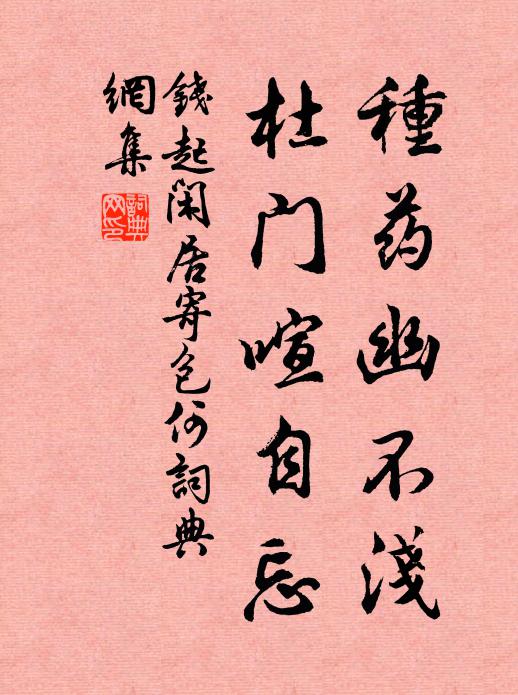 種药幽不淺
杜门喧自忘
錢起閑居寄包何詞典
網集
詞典
网印